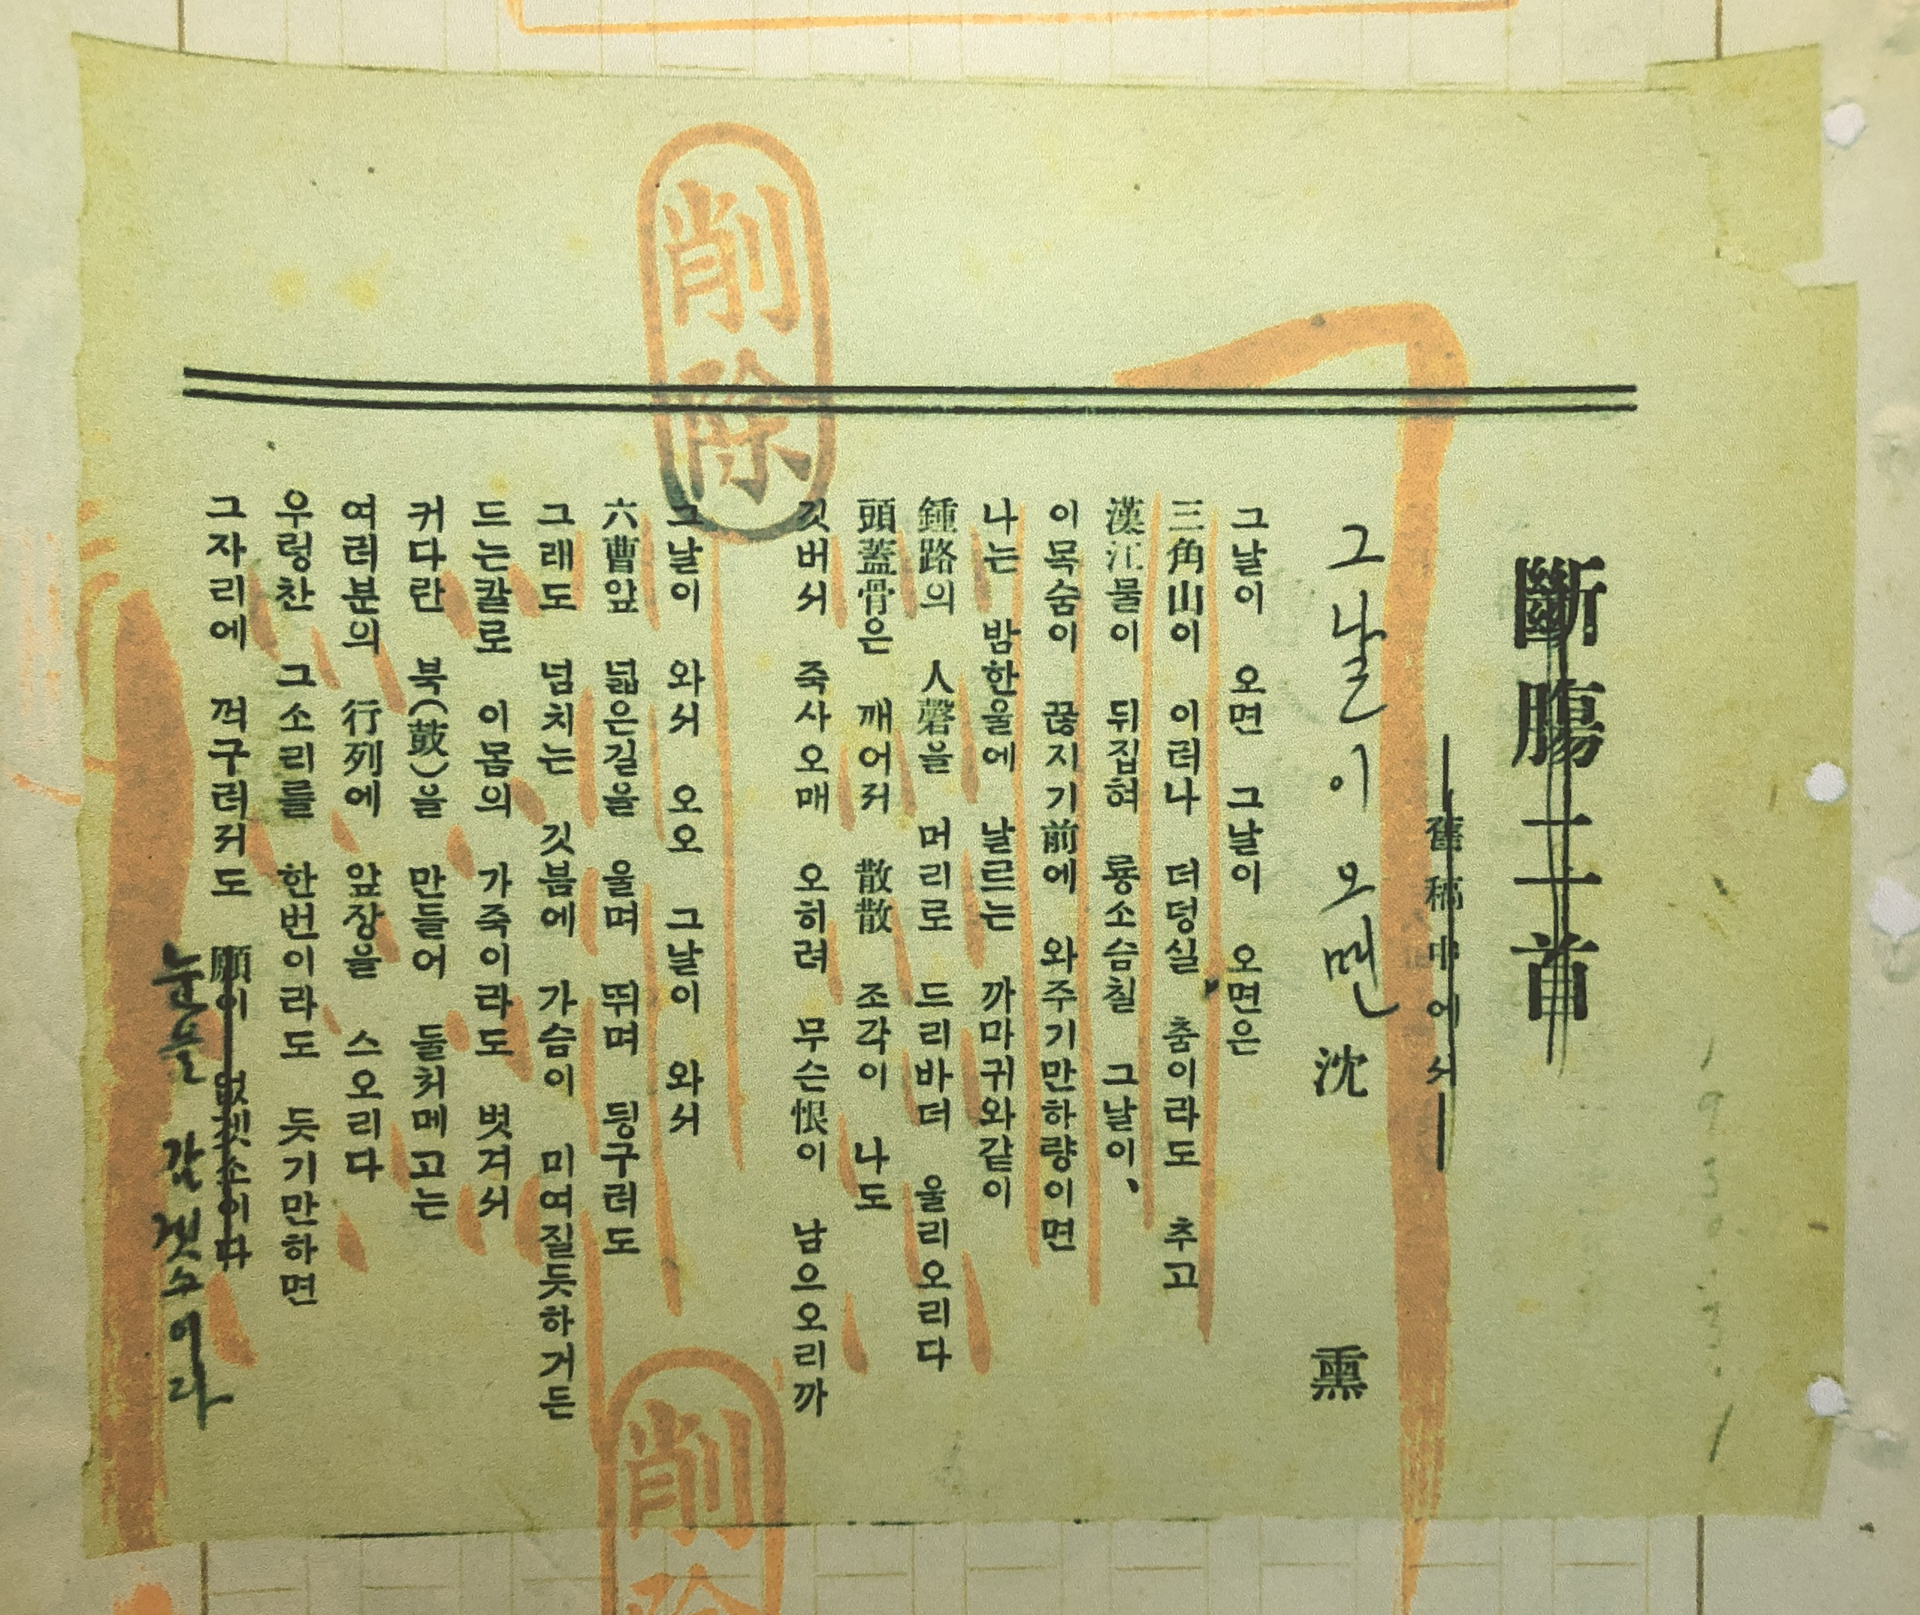 斷腸二首
─舊稿中에서─
그날이 오면
沈熏
그날이 오면 그날이 오면은
三角山이 이러나 더덩실 춤이라도 추고
漢江물이 뒤집혀 룡소슴칠 그날이、
이목숨이 끊지기前에 와주기만하량이면
나는 밤한울에 날르는 까마귀와같이
鍾路의 人磬을 머리로 드리바더 울리오리다
頭蓋骨은 깨어저 散散 조각이 나도
깃버서 죽사오매 오히려 무슨恨이 남으오리까
그날이 와서 오오 그날이 와서
六曹앞 넓은길을 울며 뛰며 딍구러도
그래도 넘치는 깃븜에 가슴이 미여질듯하거든
드는칼로 이몸의 가죽이라도 벗겨서
커다란 북(鼓)을 만들어 둘처메고는
여러분의 行列에 앞장을 스오리다
우렁찬 그소리를 한번이라도 듯기만하면
그자리에 꺽구러저도 願이 없겟소이다
눈을 감겟소이다
削除
削除